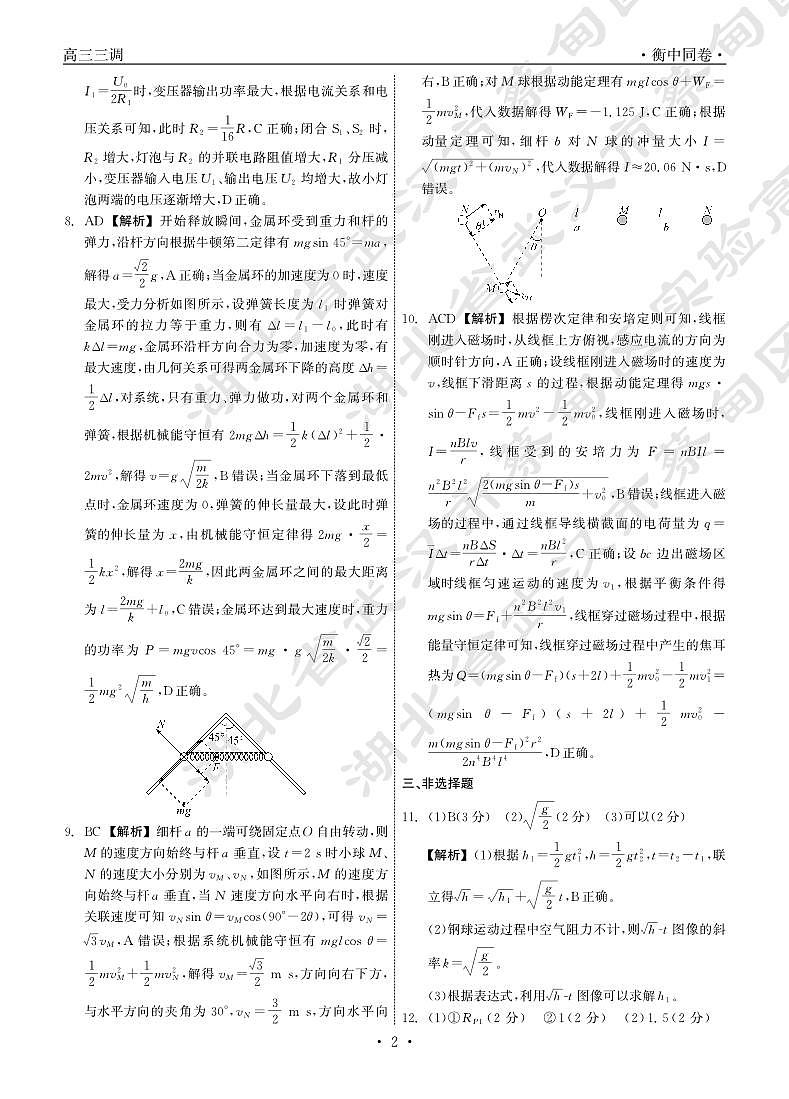 高三三调
·衡中同卷·
I₁=U₀/2R₁时,变压器输出功率最大,根据电流关系和电
压关系可知,此时 R₂=1/16 R,C 正确;闭合 S₁、S₂ 时,
R₂ 增大,灯泡与 R₂ 的并联电路阻值增大,R₁ 分压减
小,变压器输入电压 U₁、输出电压 U₂ 均增大,故小灯
泡两端的电压逐渐增大,D 正确。
8. AD【解析】开始释放瞬间,金属环受到重力和杆的
弹力,沿杆方向根据牛顿第二定律有 mgsin 45°=ma,
解得 a=√2/2 g,A 正确;当金属环的加速度为 0 时,速度
最大,受力分析如图所示,设弹簧长度为 l₁ 时弹簧对
金属环的拉力等于重力,则有 Δl=l₁-l₀,此时有
kΔl=mg,金属环沿杆方向合力为零,加速度为零,有
最大速度,由几何关系可得两金属环下降的高度 Δh=
1/2 Δl,对系统,只有重力、弹力做功,对两个金属环和
弹簧,根据机械能守恒有 2mgΔh=1/2 k(Δl)²+1/2·
2mv²,解得 v=g√(m/2k),B 错误;当金属环下落到最低
点时,金属环速度为 0,弹簧的伸长量最大,设此时弹
簧的伸长量为 x,由机械能守恒定律得 2mg·x/2=
1/2 kx²,解得 x=2mg/k,因此两金属环之间的最大距离
为 l=2mg/k+l₀,C 错误;金属环达到最大速度时,重力
的功率为 P=mgvcos 45°=mg·g√(m/2k)·√2/2=
1/2 mg²√(m/h),D 正确。
N
45° 45°
F
mg
9. BC【解析】细杆 a 的一端可绕固定点O自由转动,则
M 的速度方向始终与杆 a 垂直,设 t=2 s 时小球 M、
N 的速度大小分别为 vM、vN,如图所示,M 的速度方
向始终与杆 a 垂直,当 N 速度方向水平向右时,根据
关联速度可知 vN sin θ=vM cos(90°-2θ),可得 vN=
√3 vM,A 错误;根据系统机械能守恒有 mglcos θ=
1/2 mvM²+1/2 mvN²,解得 vM=√3/2 m s,方向向右下方,
与水平方向的夹角为 30°,vN=3/2 m s,方向水平向
右,B 正确;对 M 球根据动能定理有 mglcos θ+WF=
1/2 mvM²,代入数据解得 WF=-1.125 J,C 正确;根据
动量定理可知,细杆 b 对 N 球的冲量大小 I=
√((mgt)²+(mvN)²),代入数据解得 I≈20.06 N·s,D
错误。
N O l M l N
θ a b
M
10. ACD【解析】根据楞次定律和安培定则可知,线框
刚进入磁场时,从线框上方俯视,感应电流的方向为
顺时针方向,A 正确;设线框刚进入磁场时的速度为
v,线框下滑距离 s 的过程,根据动能定理得 mgs·
sin θ-Ffs=1/2 mv²-1/2 mv₀²,线框刚进入磁场时,
I=nBlv/r,线框受到的安培力为 F=nBIl=
n²B²l²/r √(2(mgsin θ-Ff)s/m+v₀²),B 错误;线框进入磁
场的过程中,通过线框导线横截面的电荷量为 q=
I̅Δt=nBΔS/rΔt·Δt=nBl²/r,C 正确;设 bc 边出磁场区
域时线框匀速运动的速度为 v₁,根据平衡条件得
mgsin θ=Ff+n²B²l²v₁/r,线框穿过磁场过程中,根据
能量守恒定律可知,线框穿过磁场过程中产生的焦耳
热为 Q=(mgsin θ-Ff)(s+2l)+1/2 mv₀²-1/2 mv₁²=
(mgsin θ-Ff)(s+2l)+1/2 mv₀²-
m(mgsin θ-Ff)²r²/2n⁴B⁴l⁴,D 正确。
三、非选择题
11. (1)B(3 分) (2)√(g/2)(2 分) (3)可以(2 分)
【解析】(1)根据 h₁=1/2 gt₁²,h=1/2 gt₂²,t=t₂-t₁,联
立得√h=√h₁+√(g/2) t,B 正确。
(2)钢球运动过程中空气阻力不计,则√h-t 图像的斜
率 k=√(g/2)。
(3)根据表达式,利用√h-t 图像可以求解 h₁。
12. (1)①R_P1(2 分) ②1(2 分) (2)1.5(2 分)
·2·